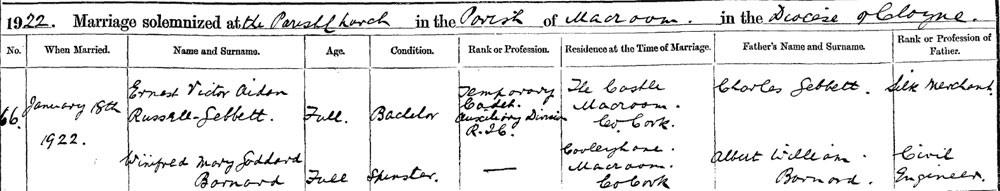 1922. Marriage solemnized at the Parish Church in the Parish of Macroom. in the Diocese of Cloyne.
No. When Married. Name and Surname. Age. Condition. Rank or Profession. Residence at the Time of Marriage. Father's Name and Surname. Rank or Profession of Father.
66. January 18th 1922.
Ernest Victor Aidan
Russell-Gebbett.
Full. Bachelor
Temporary
Cadet.
Auxiliary Division
R.I.C.
The Castle
Macroom.
Co Cork.
Charles Gebbett. Silk Merchant.
Winifred Mary Goddard
Barnard
Full Spinster. —
Cooleyhane
Macroom.
Co Cork
Albert William
Barnard.
Civil
Engineer.